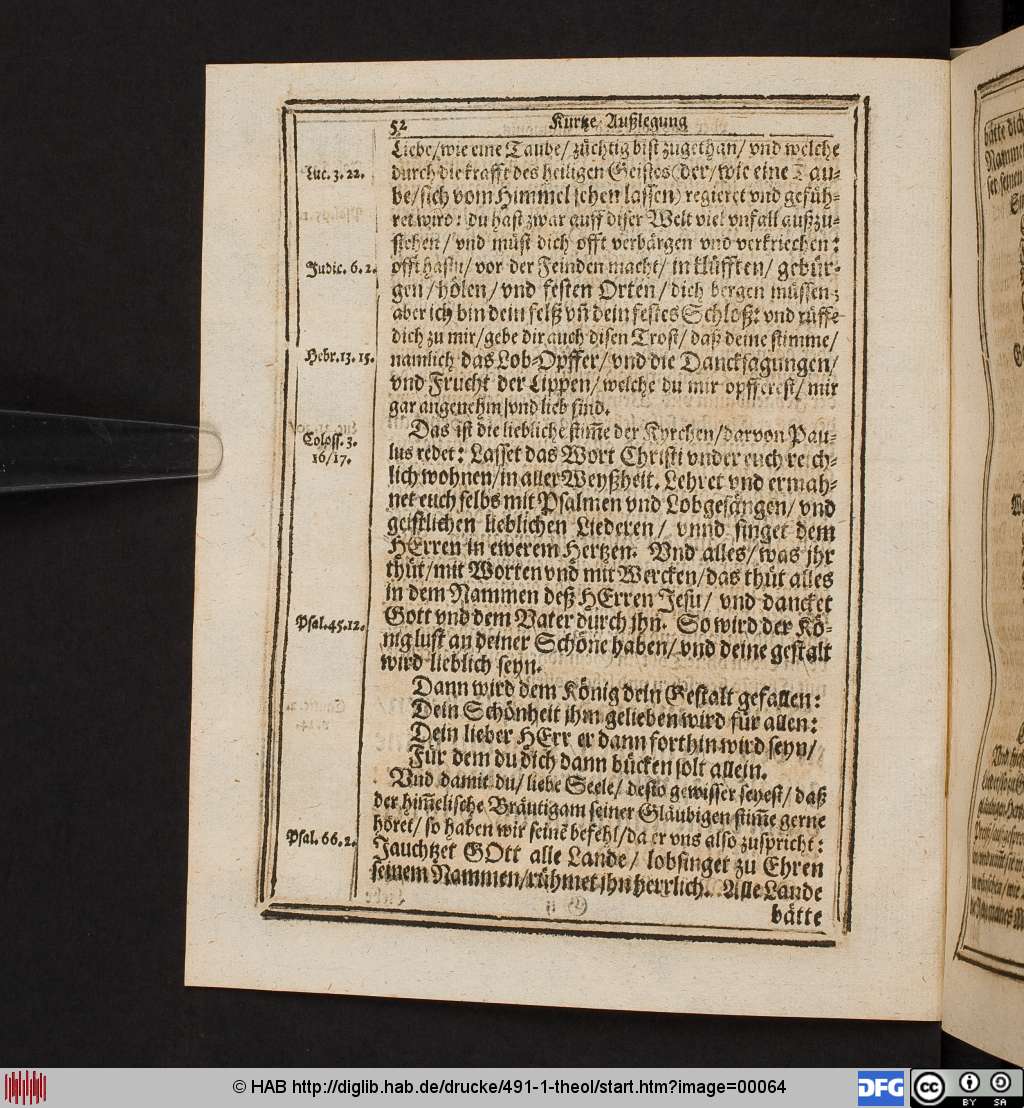 52 Kurtze Außlegung
Liebe/wie eine Taube/ züchtig bist zugethan/ vnd welche
Luc. 3. 22.
durch die krafft des heiligen Geistes (der/wie eine Tau-
be/sich vom Himmel sehen lassen) regieret vnd gefüh-
ret wird: du hast zwar auff diser Welt viel vnfall außzu-
stehen/ vnd müst dich offt verbärgen vnd verkriechen:
Judic. 6. 2.
offt hastu/ vor der Feinden macht/ in klüfften/ gebür-
gen/hölen/vnd festen Orten/dich bergen müssen;
aber ich bin dein felß vn̄ dein festes Schloß: vnd rüffe
dich zu mir/gebe dir auch disen Trost/ daß deine stimme/
Hebr. 13. 15.
namlich das Lob-Opffer/vnd die Dancksagungen/
vnd Frucht der Lippen/welche du mir opfferest/ mir
gar angenehm/vnd lieb sind.
Das ist die liebliche stim̄e der Kyrchen/darvon Pau-
Coloss. 3.
16/17.
lus redet: Lasset das Wort Christi vnder euch reich-
lich wohnen/in aller Weyßheit. Lehret vnd ermah-
net euch selbs mit Psalmen vnd Lobgesängen/ vnd
geistlichen lieblichen Liederen/ vnnd singet dem
HErren in ewerem Hertzen. Vnd alles/was jhr
thüt/mit Worten vnd mit Wercken/das thüt alles
in dem Nammen deß HErren Jesu/ vnd dancket
Psal. 45. 12.
Gott vnd dem Vater durch jhn. So wird der Kö-
nig lust an deiner Schöne haben/vnd deine gestalt
wird lieblich seyn.
Dann wird dem König dein Gestalt gefallen:
Dein Schönheit jhm gelieben wird für allen:
Dein lieber HErr er dann forthin wird seyn/
Für dem du dich dann bücken solt allein.
Vnd damit du/ liebe Seele/ desto gewisser seyest/ daß
der him̄elische Bräutigam seiner Gläubigen stim̄e gerne
höret/ so haben wir seinē befehl/da er vns also zuspricht:
Psal. 66. 2.
Jauchtzet GOtt alle Lande/ lobsinget zu Ehren
seinem Nammen/rühmet jhn herrlich. Alle Lande
bätte
© HAB http://diglib.hab.de/drucke/491-1-theol/start.htm?image=00064
DFG
cc BY SA